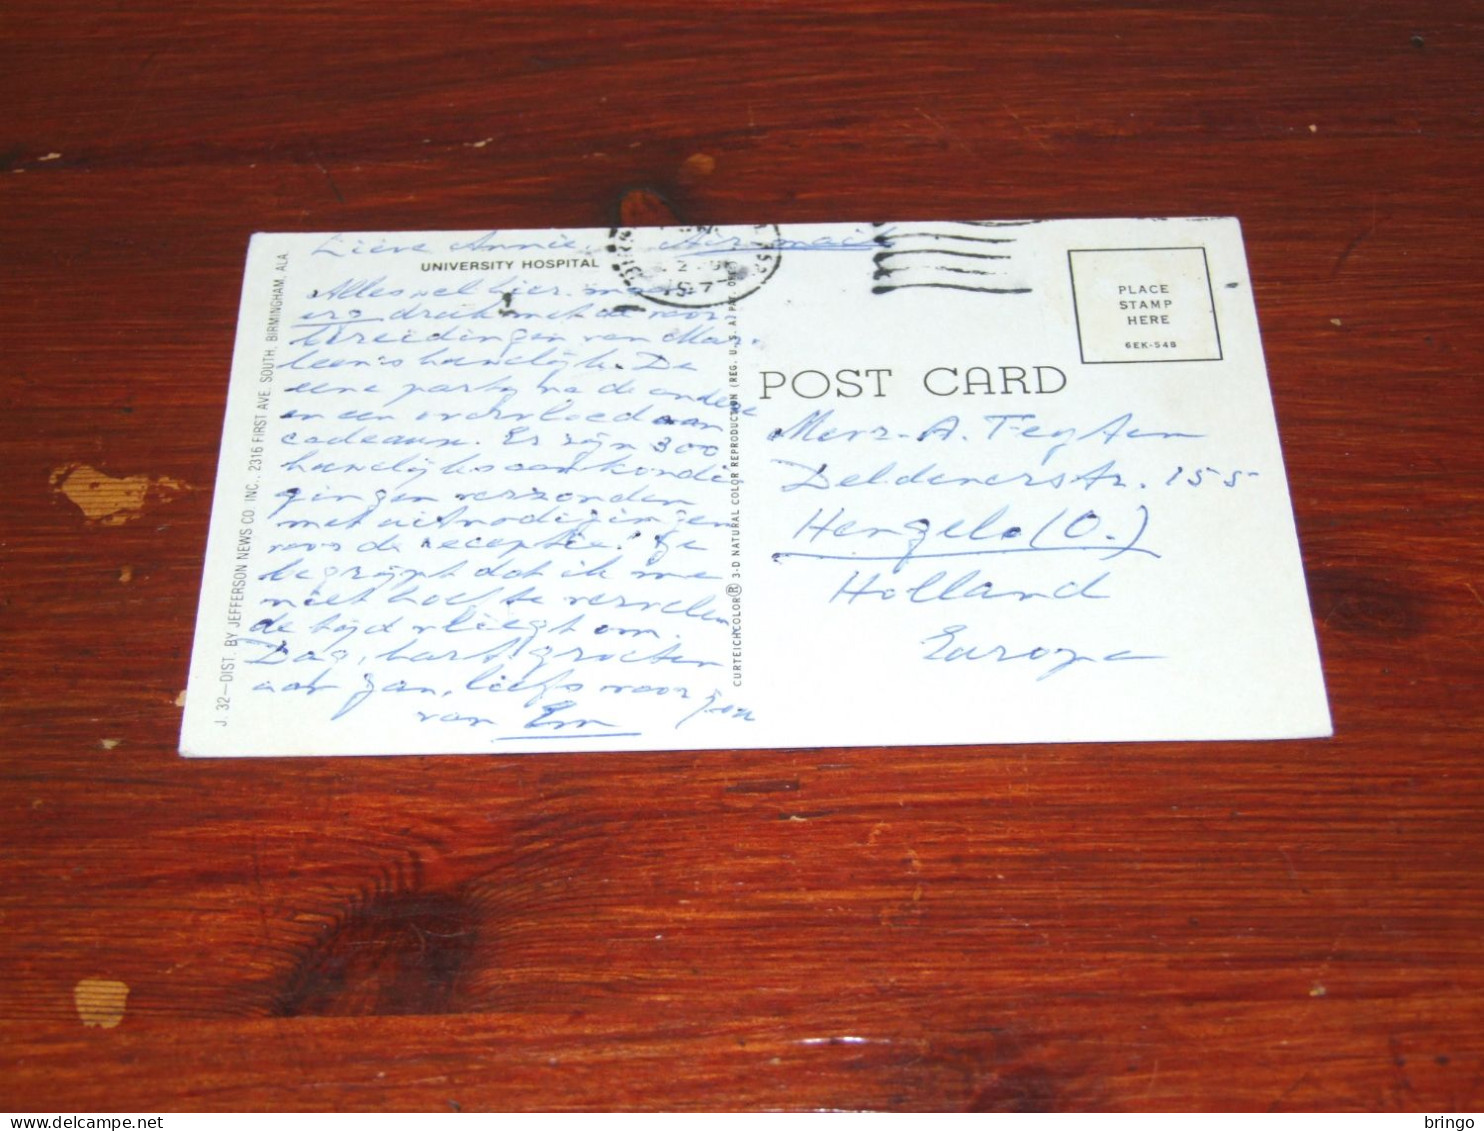 Lieve Annie, Air-mail
UNIVERSITY HOSPITAL
Alles wel hier. maar
erg druk met de voor-
bereidingen van Mar-
leen's huwelijk. De
eene party na de andere
en een overvloed aan
cadeaux. Er zijn 300
huwelijksaankondi-
gingen verzonden
met uitnodigingen
voor de receptie. Je
begrijpt dat ik me
niet hoef te vervelen
de tijd vliegt om.
Dag, hart. groeten
aan Jan, liefs voor jou
van Em
J. 32—DIST. BY JEFFERSON NEWS CO. INC., 2316 FIRST AVE. SOUTH, BIRMINGHAM, ALA.
CURTEICHCOLOR® 3-D NATURAL COLOR REPRODUCTION (REG. U. S. A. PAT. OFF.)
PLACE
STAMP
HERE
6EK-548
POST CARD
Mevr. A. Feyten
Deldenerstr. 155
Hengelo (O.)
Holland
Europe
bringo